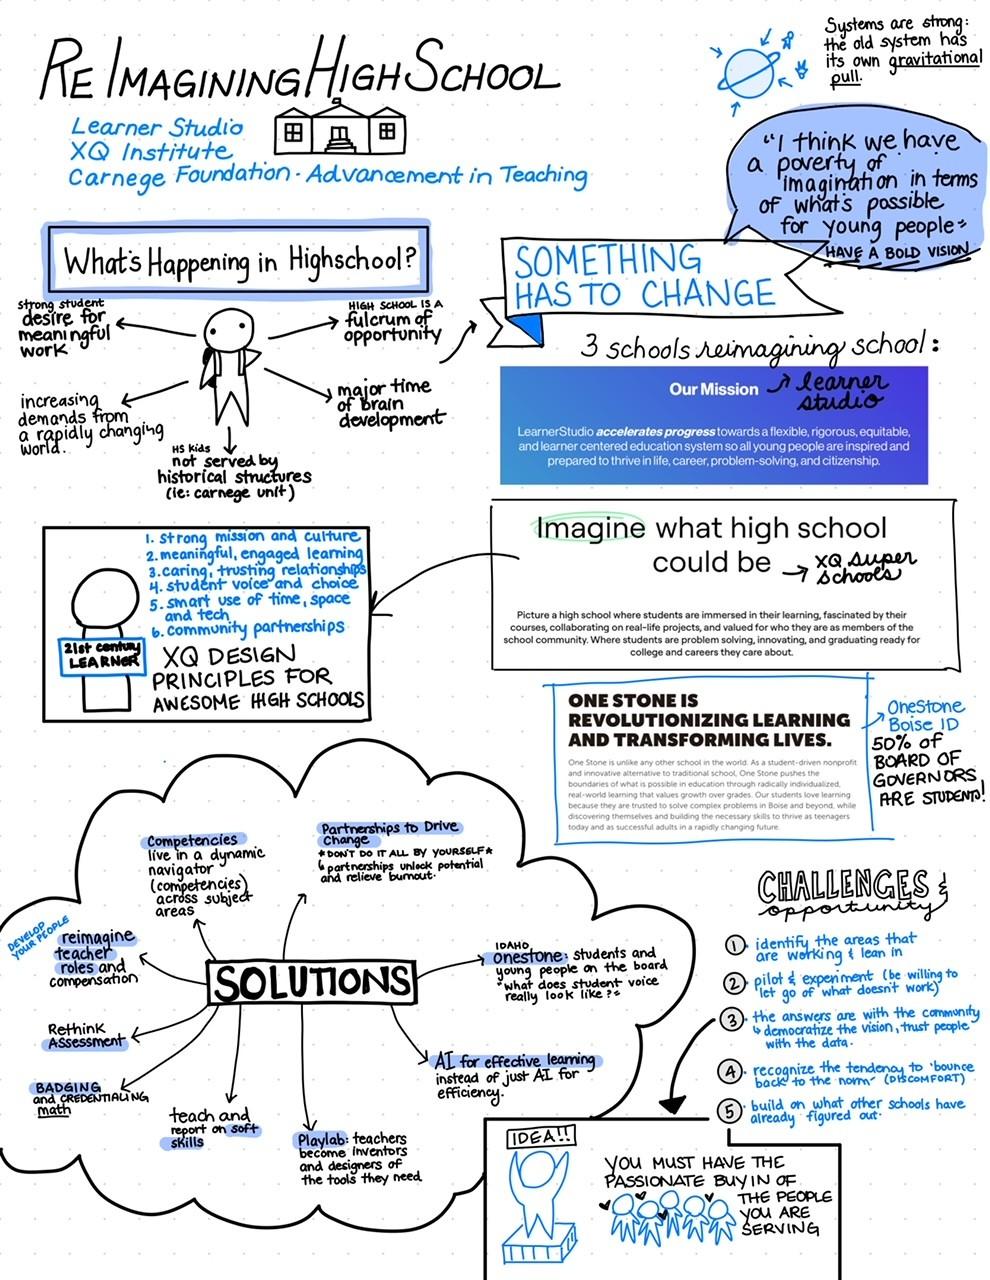 RE IMAGINING HIGH SCHOOL
Learner Studio
XQ Institute
Carnege Foundation · Advancement in Teaching
Systems are strong:
the old system has
its own gravitational
pull.
"I think we have
a poverty of
imagination in terms
of what's possible
for young people"
HAVE A BOLD VISION
What's Happening in Highschool?
strong student
desire for
meaningful
work
HIGH SCHOOL IS A
fulcrum of
opportunity
increasing
demands from
a rapidly changing
world.
major time
of brain
development
HS Kids
not served by
historical structures
(ie: carnege unit)
SOMETHING
HAS TO CHANGE
3 schools reimagining school:
Our Mission
learner
studio
LearnerStudio accelerates progress towards a flexible, rigorous, equitable,
and learner centered education system so all young people are inspired and
prepared to thrive in life, career, problem-solving, and citizenship.
Imagine what high school
could be
XQ super
schools
Picture a high school where students are immersed in their learning, fascinated by their
courses, collaborating on real-life projects, and valued for who they are as members of the
school community. Where students are problem solving, innovating, and graduating ready for
college and careers they care about.
1. strong mission and culture
2. meaningful, engaged learning
3. caring, trusting relationships
4. student voice and choice
5. smart use of time, space
and tech
6. community partnerships
21st century
LEARNER
XQ DESIGN
PRINCIPLES FOR
AWESOME HIGH SCHOOLS
ONE STONE IS
REVOLUTIONIZING LEARNING
AND TRANSFORMING LIVES.
One Stone is unlike any other school in the world. As a student-driven nonprofit
and innovative alternative to traditional school, One Stone pushes the
boundaries of what is possible in education through radically individualized,
real-world learning that values growth over grades. Our students love learning
because they are trusted to solve complex problems in Boise and beyond, while
discovering themselves and building the necessary skills to thrive as teenagers
today and as successful adults in a rapidly changing future.
OneStone
Boise ID
50% OF
BOARD OF
GOVERNORS
ARE STUDENTS!
SOLUTIONS
Competencies
live in a dynamic
navigator
(competencies)
across subject
areas
Partnerships to Drive
Change
*DON'T DO IT ALL BY YOURSELF*
partnerships unlock potential
and relieve burnout.
DEVELOP
YOUR PEOPLE
reimagine
teacher
roles and
compensation
IDAHO
onestone: students and
young people on the board
"what does student voice
really look like?"
Rethink
ASSESSMENT
AI for effective learning
instead of just AI for
efficiency.
BADGING
and CREDENTIALING
math
teach and
report on soft
skills
Playlab: teachers
become inventors
and designers of
the tools they need
CHALLENGES &
opportunity
1 · identify the areas that
are working & lean in
2 · pilot & experiment (be willing to
let go of what doesn't work)
3 · the answers are with the community
democratize the vision, trust people
with the data.
4 · recognize the tendency to "bounce
back to the norm" (DISCOMFORT)
5 · build on what other schools have
already figured out.
IDEA!!
YOU MUST HAVE THE
PASSIONATE BUY IN OF
THE PEOPLE
YOU ARE
SERVING